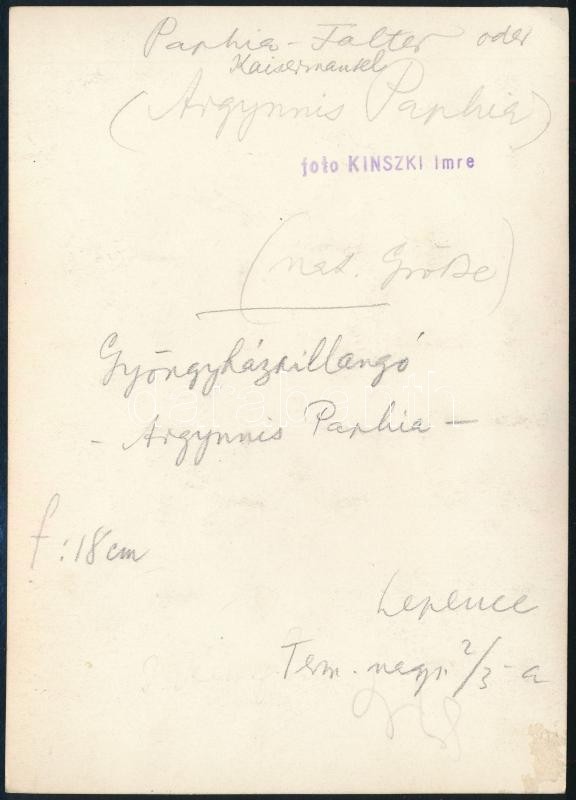 Paphia - Falter oder
Kaisermantel
(Argynnis Paphia)
foto KINSZKI Imre
(nat. Größe)
Gyöngyházpillangó
- Argynnis Paphia -
f: 18 cm
Lepence
Term. nagys. 2/3-a